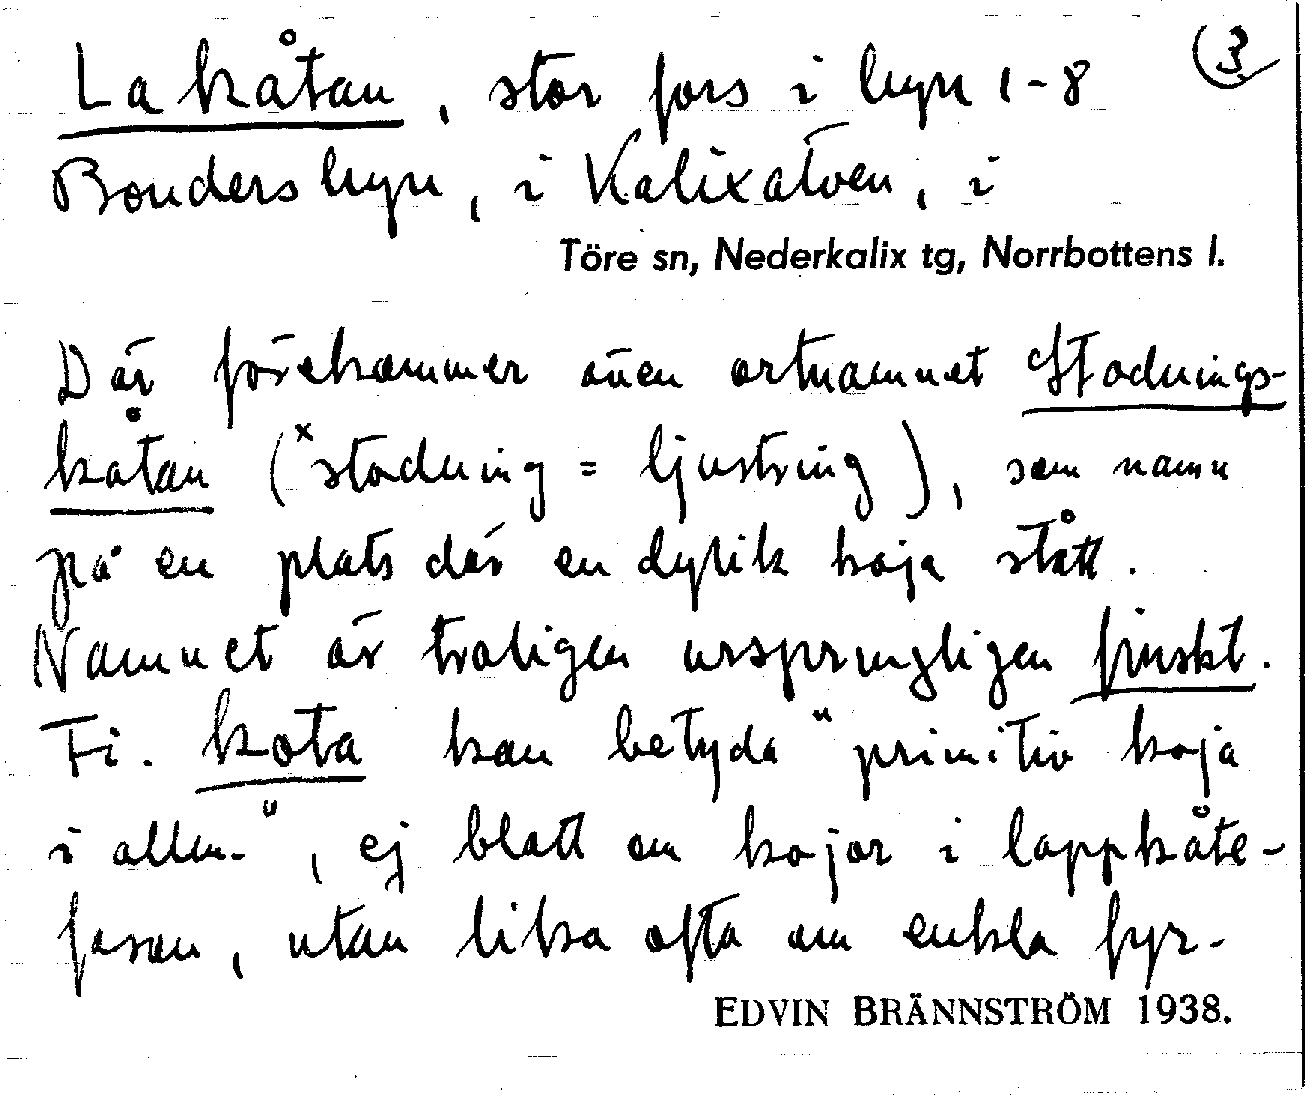 Lakåtan, stor fors i byn 1-8 (3)
Bondersbyn, i Kalixälven, i
Töre sn, Nederkalix tg, Norrbottens l.
Där förekommer även ortnamnet Stodnings-
kåtan (ˣstodning = ljustring), som namn
på en plats där en dylik koja stått.
Namnet är troligen ursprungligen finskt.
Fi. kota kan betyda "primitiv koja
i allm.", ej blott om kojor i lappkåte-
fason, utan lika ofta om enkla fyr-
EDVIN BRÄNNSTRÖM 1938.